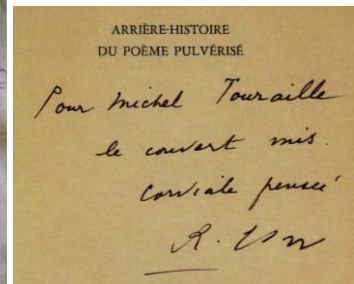 ARRIÈRE-HISTOIRE
DU POÈME PULVÉRISÉ
Pour Michel Touraille
le couvert mis.
Cordiale pensée
R. Char